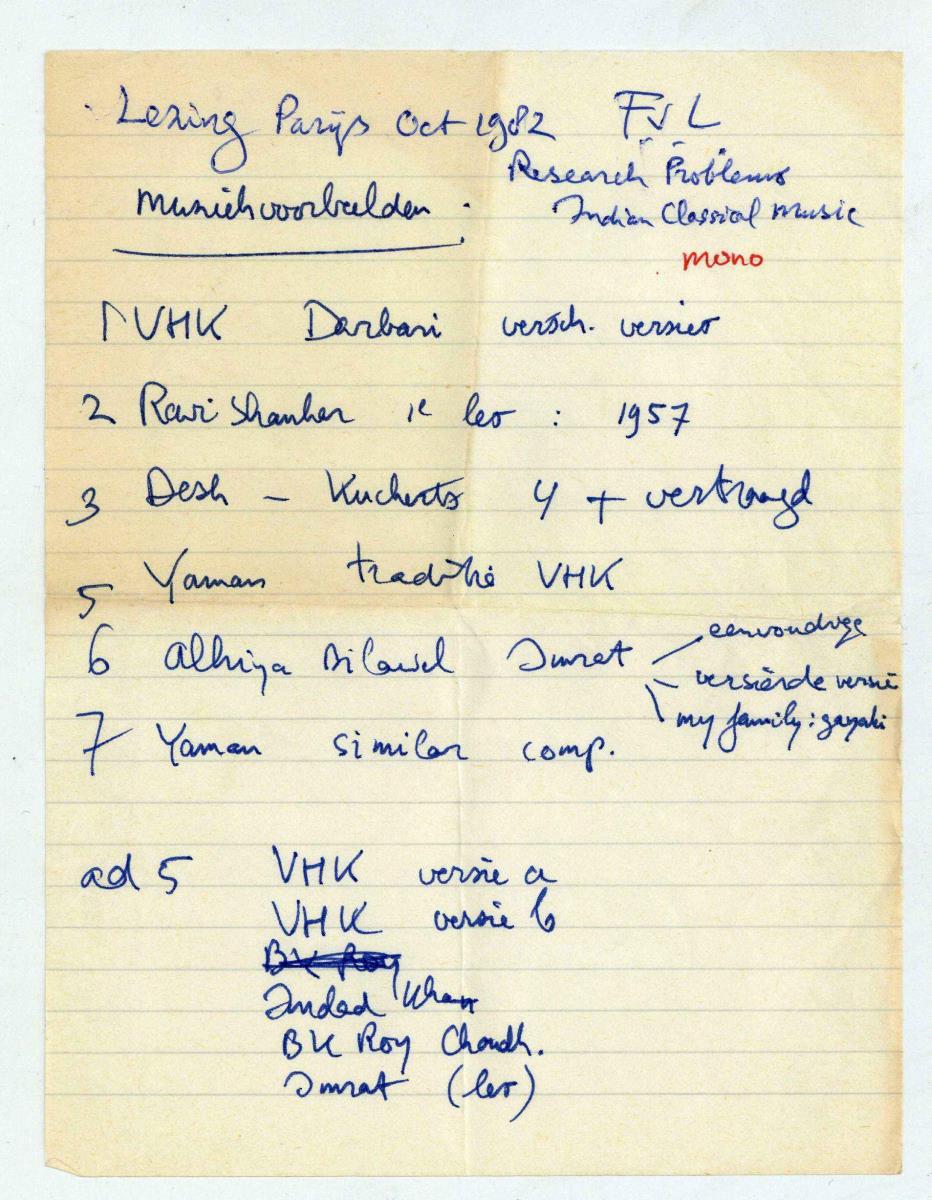 Lezing Parijs Oct 1982 FVL
Research Problems
Muziekvoorbeelden.
Indian Classical Music
mono
1 VHK Darbari versch. versies
2 Ravi Shankar 1e les : 1957
3 Desh - Kuckertz 4 + vertraagd
5 Yaman traditie VHK
6 Alhiya Bilawal Imrat
eenvoudige
versierde versie
my family: gayaki
7 Yaman similar comp.
ad 5 VHK versie a
VHK versie b
BK Roy
Imdad Khan
BK Roy Chaudh.
Imrat (les)